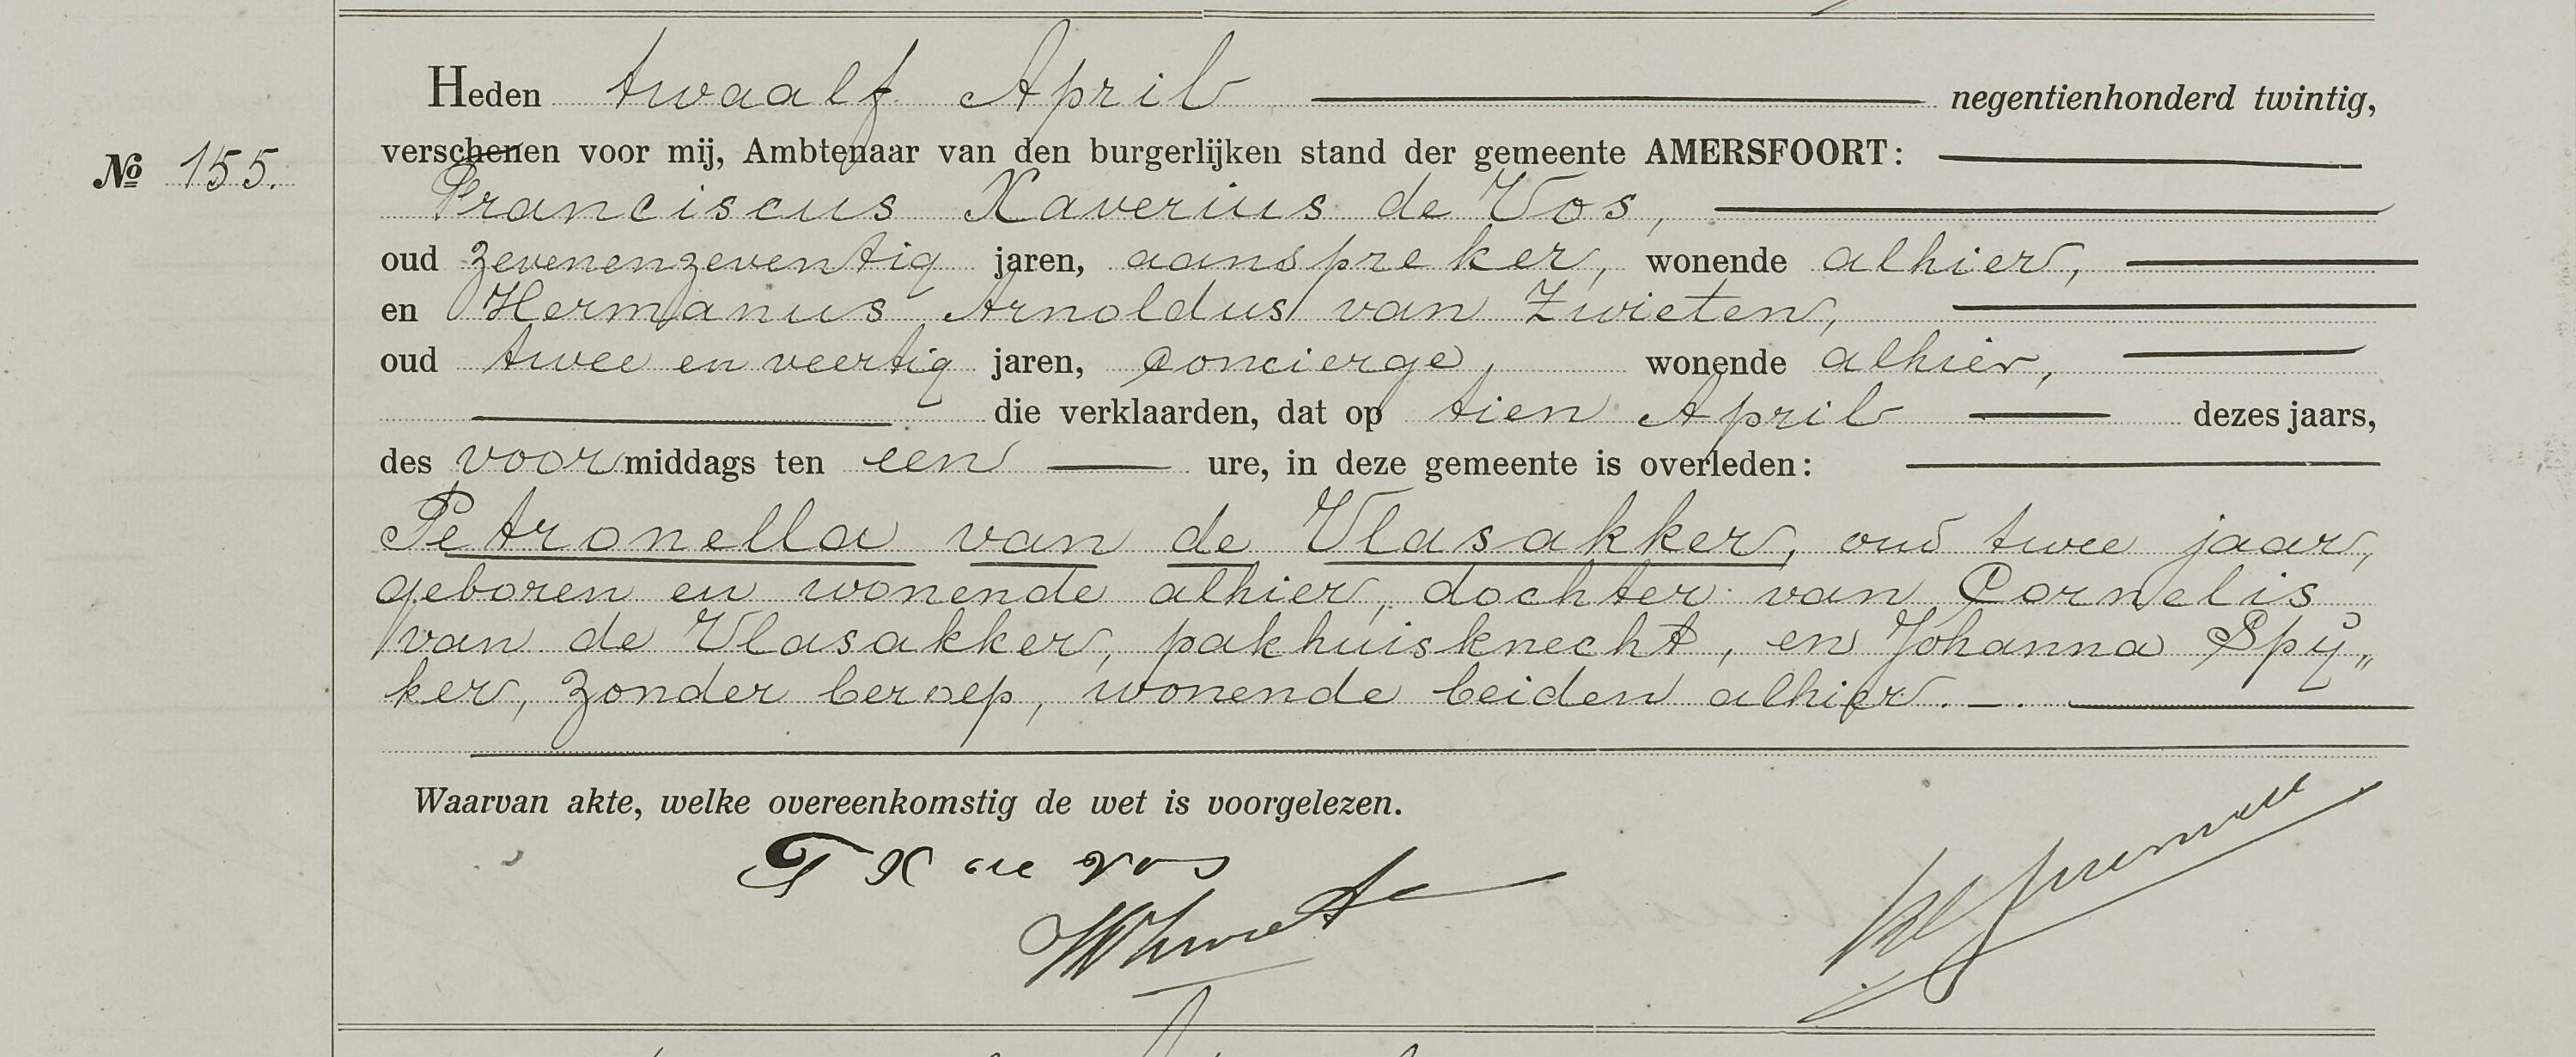 Heden twaalf April negentienhonderd twintig,
verschenen voor mij, Ambtenaar van den burgerlijken stand der gemeente AMERSFOORT:
No 155.
Franciscus Xaverius de Vos,
oud zevenenzeventig jaren, aanspreker, wonende alhier,
en Hermanus Arnoldus van Zwieten,
oud twee en veertig jaren, concierge, wonende alhier,
die verklaarden, dat op tien April dezes jaars,
des voormiddags ten een ure, in deze gemeente is overleden:
Petronella van de Vlasakker, oud twee jaar,
geboren en wonende alhier, dochter van Cornelis
van de Vlasakker, pakhuisknecht, en Johanna Spij„
ker, zonder beroep, wonende beiden alhier. –.
Waarvan akte, welke overeenkomstig de wet is voorgelezen.
F X de Vos